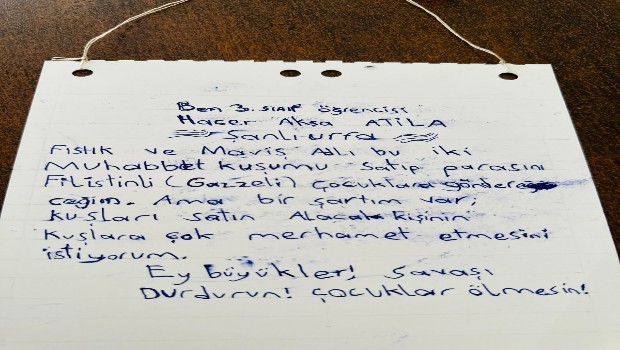 Ben 3. sınıf öğrencisi
Hacer Aksa ATİLA
Şanlıurfa
Fıstık ve Maviş Adlı bu iki
Muhabbet kuşumu satıp parasını
Filistinli (Gazzeli) çocuklara göndere
ceğim. Ama bir şartım var,
kuşları satın Alacak kişinin
kuşlara çok merhamet etmesini
istiyorum.
Ey büyükler! Savaşı
Durdurun! çocuklar ölmesin!